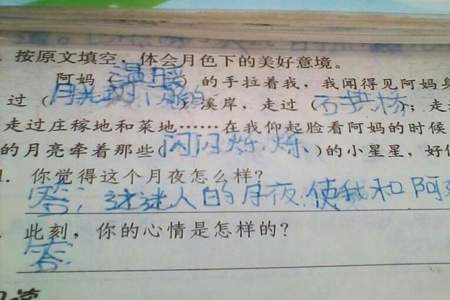 按原文填空,体会月色下的美好意境。
阿妈(温暖)的手拉着我,我闻得见阿妈身
过(月光闪闪的)溪岸,走过(石拱桥;走
走过庄稼地和菜地……在我仰起脸看阿妈的时候
的月亮牵着那些(闪闪烁烁、)的小星星,好
你觉得这个月夜怎么样?
答:这迷人的月夜,使我和阿
此刻,你的心情是怎样的?
答: